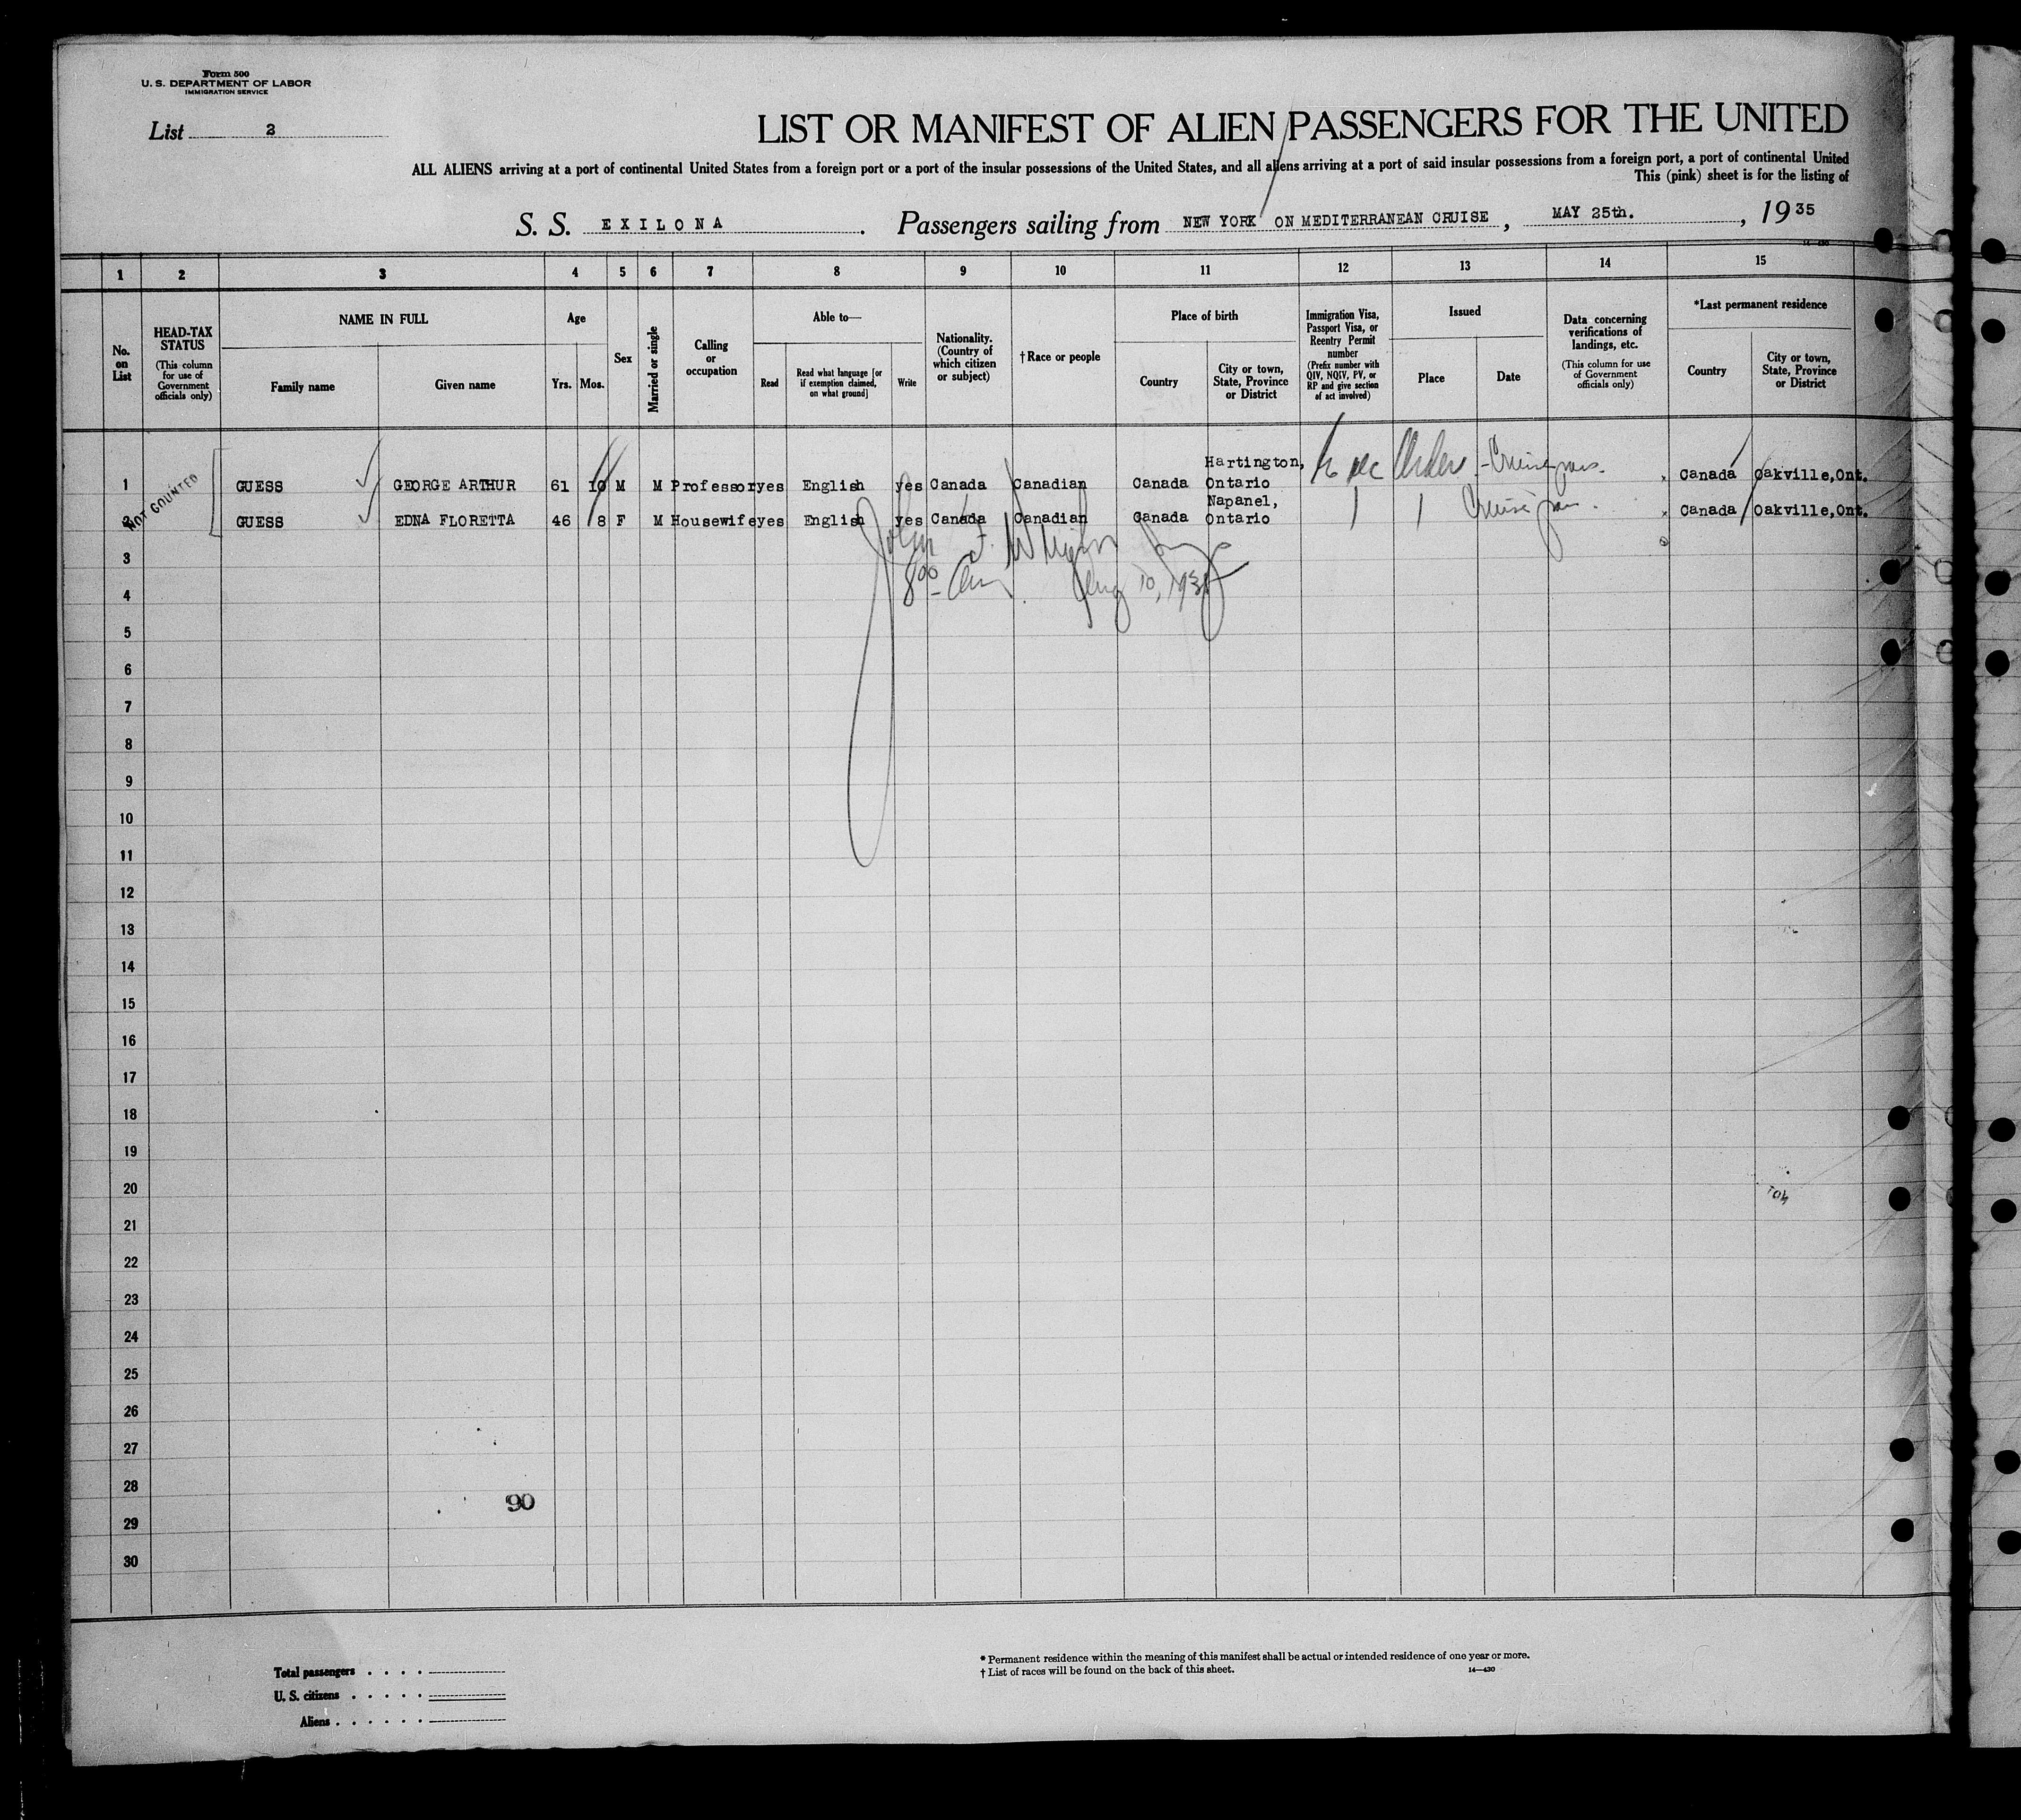 Form 500
U. S. DEPARTMENT OF LABOR
IMMIGRATION SERVICE
List 2
LIST OR MANIFEST OF ALIEN PASSENGERS FOR THE UNITED
ALL ALIENS arriving at a port of continental United States from a foreign port or a port of the insular possessions of the United States, and all aliens arriving at a port of said insular possessions from a foreign port, a port of continental United
This (pink) sheet is for the listing of
S. S. EXILONA. Passengers sailing from NEW YORK ON MEDITERRANEAN CRUISE, MAY 25th., 1935
1 2 3 4 5 6 7 8 9 10 11 12 13 14 15
No. on List
HEAD-TAX STATUS (This column for use of Government officials only)
NAME IN FULL
Family name
Given name
Age
Yrs. Mos.
Sex
Married or single
Calling or occupation
Able to—
Read
Read what language [or if exemption claimed, on what ground]
Write
Nationality. (Country of which citizen or subject)
†Race or people
Place of birth
Country
City or town, State, Province or District
Immigration Visa, Passport Visa, or Reentry Permit number (Prefix number with QIV, NQIV, PV, or RP and give section of act involved)
Issued
Place
Date
Data concerning verifications of landings, etc. (This column for use of Government officials only)
*Last permanent residence
Country
City or town, State, Province or District
NOT COUNTED
1 GUESS GEORGE ARTHUR 61 10 M M Professor yes English yes Canada Canadian Canada Hartington, Ontario Order - Cruise pass. Canada Oakville,Ont.
2 GUESS EDNA FLORETTA 46 8 F M Housewife yes English yes Canada Canadian Canada Napanel, Ontario Cruise pass. Canada Oakville,Ont.
John F.
800 Aug 10, 1935
3
4
5
6
7
8
9
10
11
12
13
14
15
16
17
18
19
20
21
22
23
24
25
26
27
28
29
30
90
Total passengers
U. S. citizens
Aliens
* Permanent residence within the meaning of this manifest shall be actual or intended residence of one year or more.
† List of races will be found on the back of this sheet.
14—430